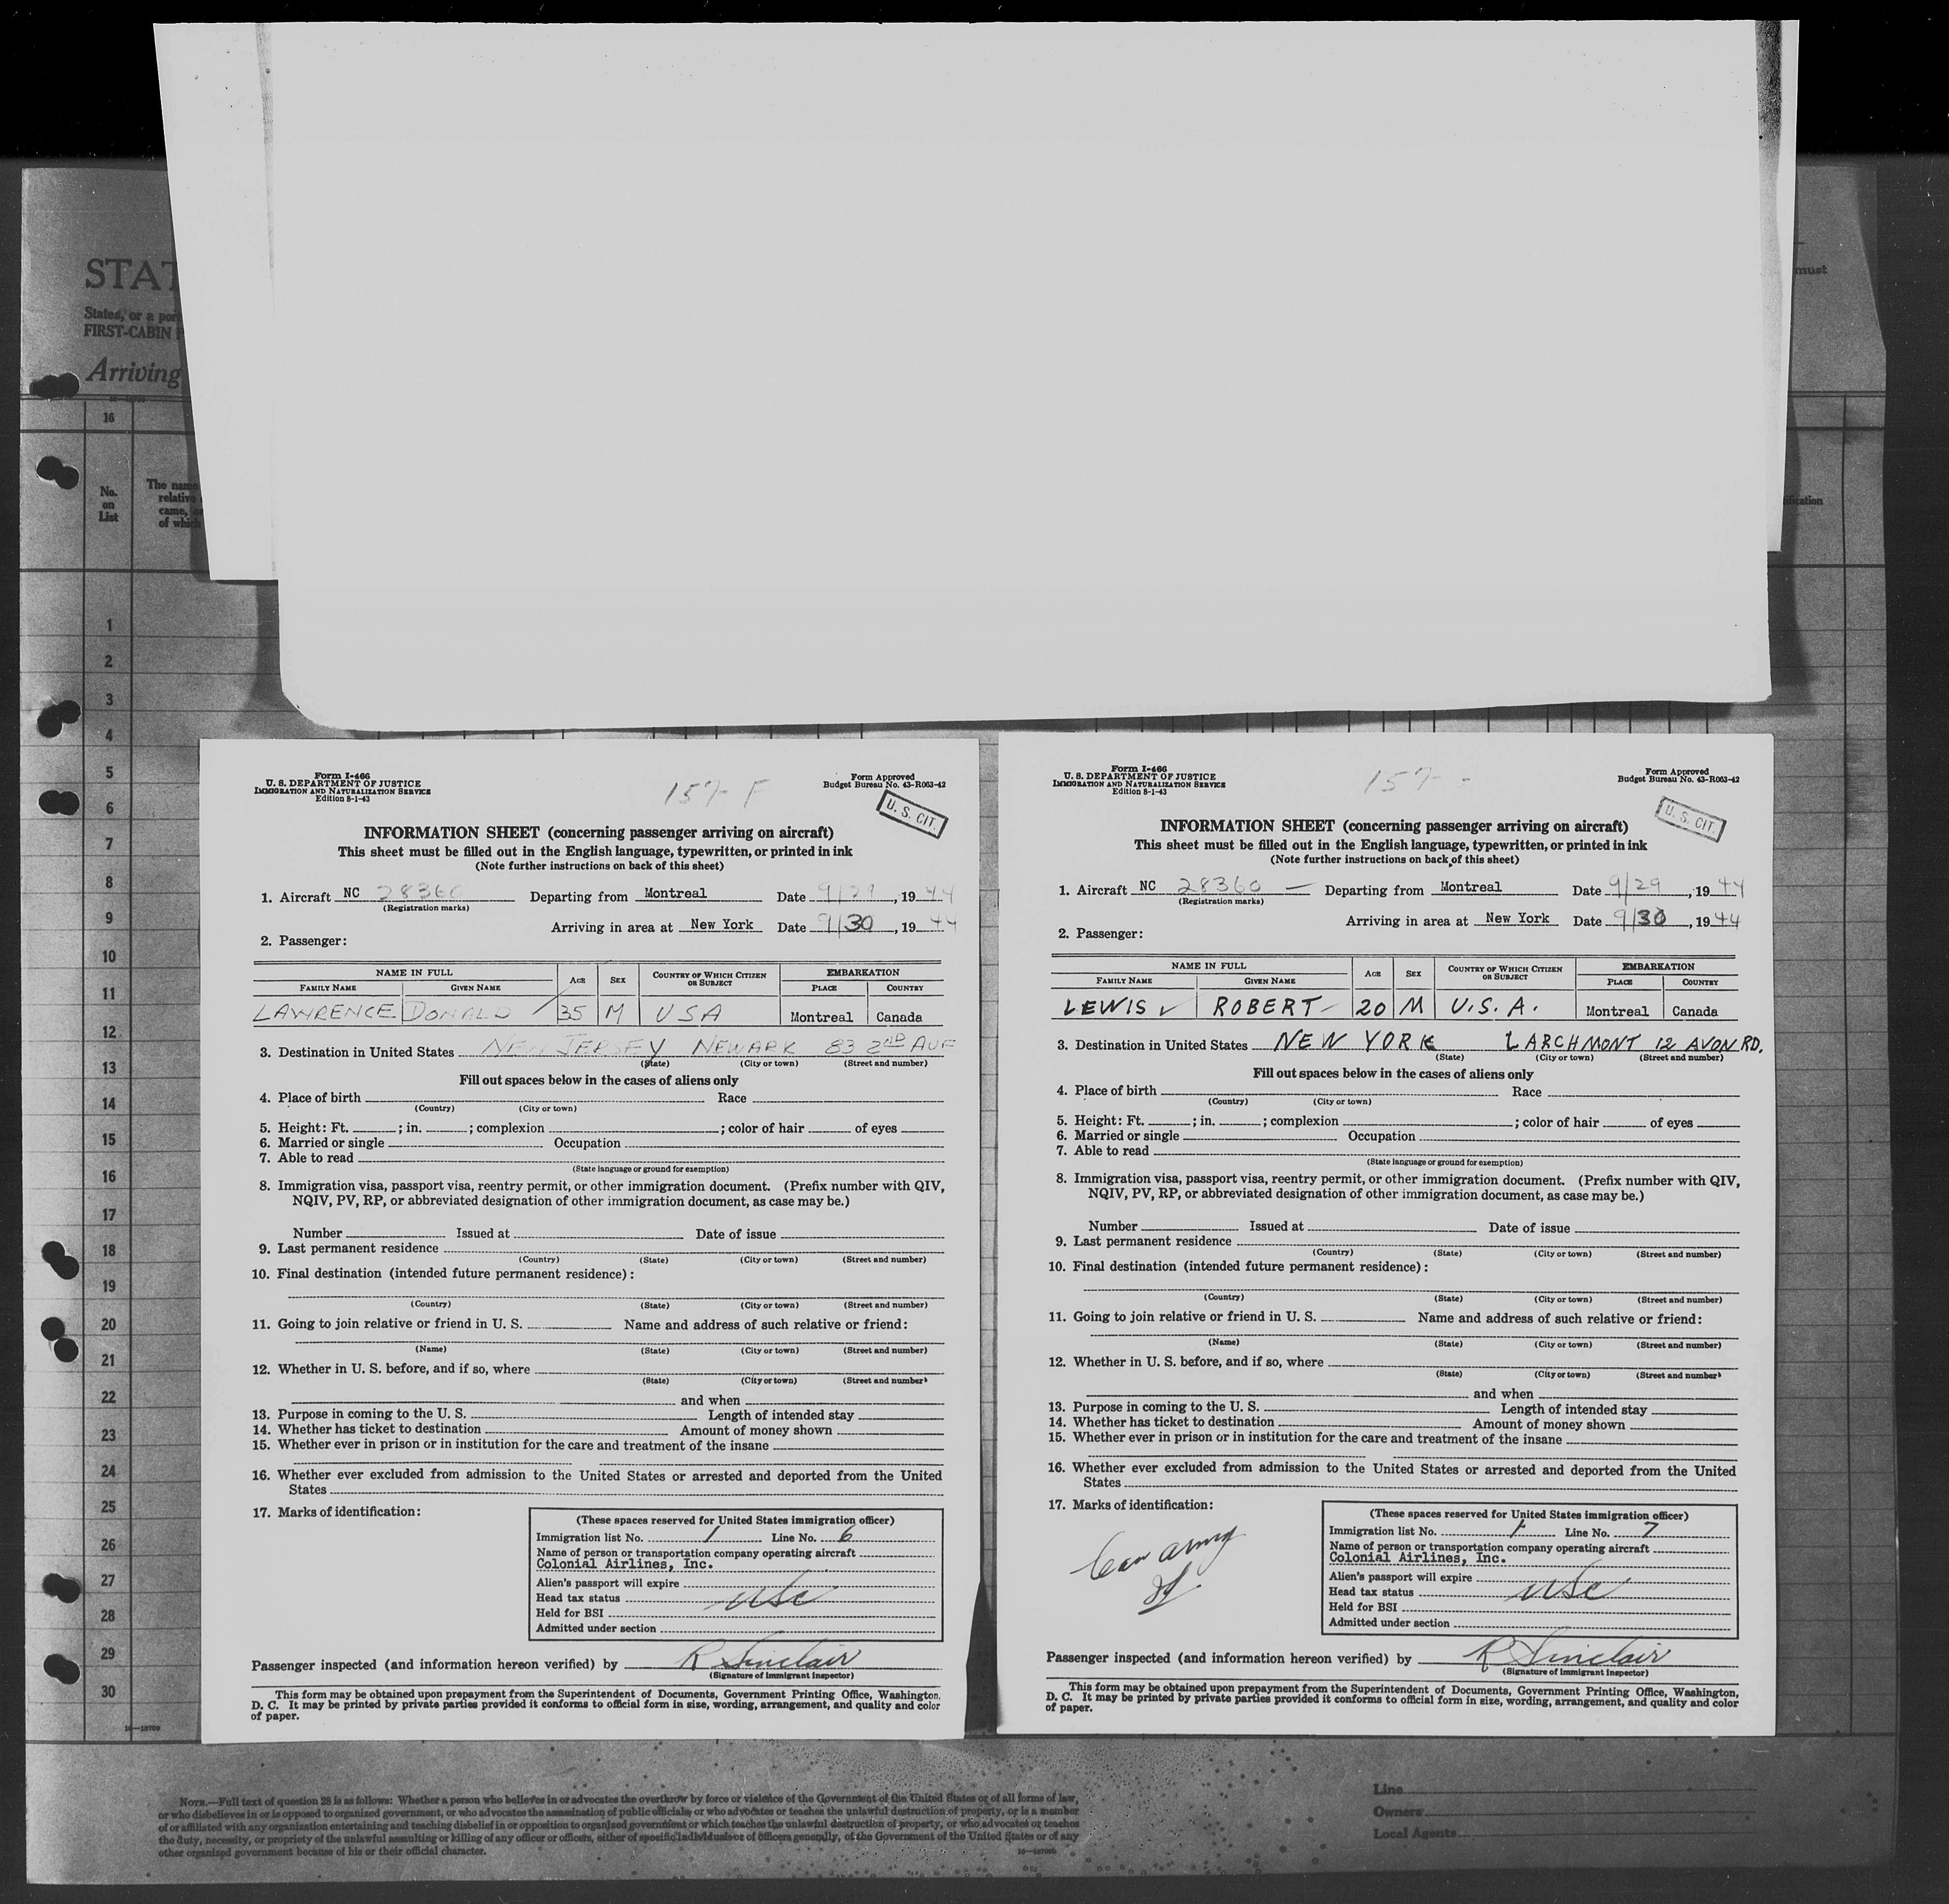 STAT
States, or a por
FIRST-CABIN
Arriving
must
16
No.
on
List
The name
relative
came,
of which
1
2
3
4
5
6
7
8
9
10
11
12
13
14
15
16
17
18
19
20
21
22
23
24
25
26
27
28
29
30
16—18709
Form I-466
U. S. DEPARTMENT OF JUSTICE
IMMIGRATION AND NATURALIZATION SERVICE
Edition 8-1-43
157- F
Form Approved
Budget Bureau No. 43-R063-42
U. S. CIT.
INFORMATION SHEET (concerning passenger arriving on aircraft)
This sheet must be filled out in the English language, typewritten, or printed in ink
(Note further instructions on back of this sheet)
1. Aircraft NC 28360 Departing from Montreal Date 9/29, 1944
(Registration marks)
Arriving in area at New York Date 9/30, 1944
2. Passenger:
NAME IN FULL AGE SEX COUNTRY OF WHICH CITIZEN OR SUBJECT EMBARKATION
FAMILY NAME GIVEN NAME PLACE COUNTRY
LAWRENCE DONALD 35 M USA Montreal Canada
3. Destination in United States NEW JERSEY NEWARK 83 2ND AVE
(State) (City or town) (Street and number)
Fill out spaces below in the cases of aliens only
4. Place of birth Race
(Country) (City or town)
5. Height: Ft. ; in. ; complexion ; color of hair of eyes
6. Married or single Occupation
7. Able to read
(State language or ground for exemption)
8. Immigration visa, passport visa, reentry permit, or other immigration document. (Prefix number with QIV,
NQIV, PV, RP, or abbreviated designation of other immigration document, as case may be.)
Number Issued at Date of issue
9. Last permanent residence
(Country) (State) (City or town) (Street and number)
10. Final destination (intended future permanent residence):
(Country) (State) (City or town) (Street and number)
11. Going to join relative or friend in U. S. Name and address of such relative or friend:
(Name) (State) (City or town) (Street and number)
12. Whether in U. S. before, and if so, where
(State) (City or town) (Street and number)
and when
13. Purpose in coming to the U. S. Length of intended stay
14. Whether has ticket to destination Amount of money shown
15. Whether ever in prison or in institution for the care and treatment of the insane
16. Whether ever excluded from admission to the United States or arrested and deported from the United
States
17. Marks of identification:
(These spaces reserved for United States immigration officer)
Immigration list No. 1 Line No. 6
Name of person or transportation company operating aircraft
Colonial Airlines, Inc.
Alien's passport will expire
Head tax status USC
Held for BSI
Admitted under section
Passenger inspected (and information hereon verified) by R Sinclair
(Signature of Immigrant Inspector)
This form may be obtained upon prepayment from the Superintendent of Documents, Government Printing Office, Washington,
D. C. It may be printed by private parties provided it conforms to official form in size, wording, arrangement, and quality and color
of paper.
Form I-466
U. S. DEPARTMENT OF JUSTICE
IMMIGRATION AND NATURALIZATION SERVICE
Edition 8-1-43
157- -
Form Approved
Budget Bureau No. 43-R063-42
U. S. CIT.
INFORMATION SHEET (concerning passenger arriving on aircraft)
This sheet must be filled out in the English language, typewritten, or printed in ink
(Note further instructions on back of this sheet)
1. Aircraft NC 28360 — Departing from Montreal Date 9/29, 1944
(Registration marks)
Arriving in area at New York Date 9/30, 1944
2. Passenger:
NAME IN FULL AGE SEX COUNTRY OF WHICH CITIZEN OR SUBJECT EMBARKATION
FAMILY NAME GIVEN NAME PLACE COUNTRY
LEWIS ROBERT 20 M U.S.A. Montreal Canada
3. Destination in United States NEW YORK LARCHMONT 12 AVON RD.
(State) (City or town) (Street and number)
Fill out spaces below in the cases of aliens only
4. Place of birth Race
(Country) (City or town)
5. Height: Ft. ; in. ; complexion ; color of hair of eyes
6. Married or single Occupation
7. Able to read
(State language or ground for exemption)
8. Immigration visa, passport visa, reentry permit, or other immigration document. (Prefix number with QIV,
NQIV, PV, RP, or abbreviated designation of other immigration document, as case may be.)
Number Issued at Date of issue
9. Last permanent residence
(Country) (State) (City or town) (Street and number)
10. Final destination (intended future permanent residence):
(Country) (State) (City or town) (Street and number)
11. Going to join relative or friend in U. S. Name and address of such relative or friend:
(Name) (State) (City or town) (Street and number)
12. Whether in U. S. before, and if so, where
(State) (City or town) (Street and number)
and when
13. Purpose in coming to the U. S. Length of intended stay
14. Whether has ticket to destination Amount of money shown
15. Whether ever in prison or in institution for the care and treatment of the insane
16. Whether ever excluded from admission to the United States or arrested and deported from the United
States
17. Marks of identification:
Can army
(These spaces reserved for United States immigration officer)
Immigration list No. 1 Line No. 7
Name of person or transportation company operating aircraft
Colonial Airlines, Inc.
Alien's passport will expire
Head tax status USC
Held for BSI
Admitted under section
Passenger inspected (and information hereon verified) by R Sinclair
(Signature of Immigrant Inspector)
This form may be obtained upon prepayment from the Superintendent of Documents, Government Printing Office, Washington,
D. C. It may be printed by private parties provided it conforms to official form in size, wording, arrangement, and quality and color
of paper.
NOTE.—Full text of question 28 is as follows: Whether a person who believes in or advocates the overthrow by force or violence of the Government of the United States or of all forms of law,
or who disbelieves in or is opposed to organized government, or who advocates the assassination of public officials, or who advocates or teaches the unlawful destruction of property, or is a member
of or affiliated with any organization entertaining and teaching disbelief in or opposition to organized government or which teaches the unlawful destruction of property, or who advocates or teaches
the duty, necessity, or propriety of the unlawful assaulting or killing of any officer or officers, either of specific individuals or of officers generally, of the Government of the United States or of any
other organized government because of his or their official character.
Line
Owners
Local Agents